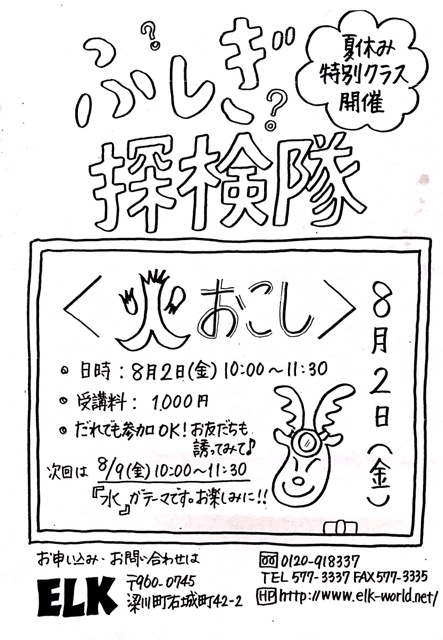 夏休み
特別クラス
開催
?
ふしぎ
?
探検隊
〈火おこし〉
8月2日(金)
• 日時:8月2日(金) 10:00〜11:30
• 受講料: 1,000円
• だれでも参加OK! お友だちも
誘ってみて♪
次回は 8/9(金) 10:00〜11:30
『水』がテーマです。お楽しみに!!
お申し込み・お問い合わせは
ELK
〒960-0745
梁川町右城町42-2
0120-918337
TEL 577-3337 FAX 577-3335
HP http://www.elk-world.net/